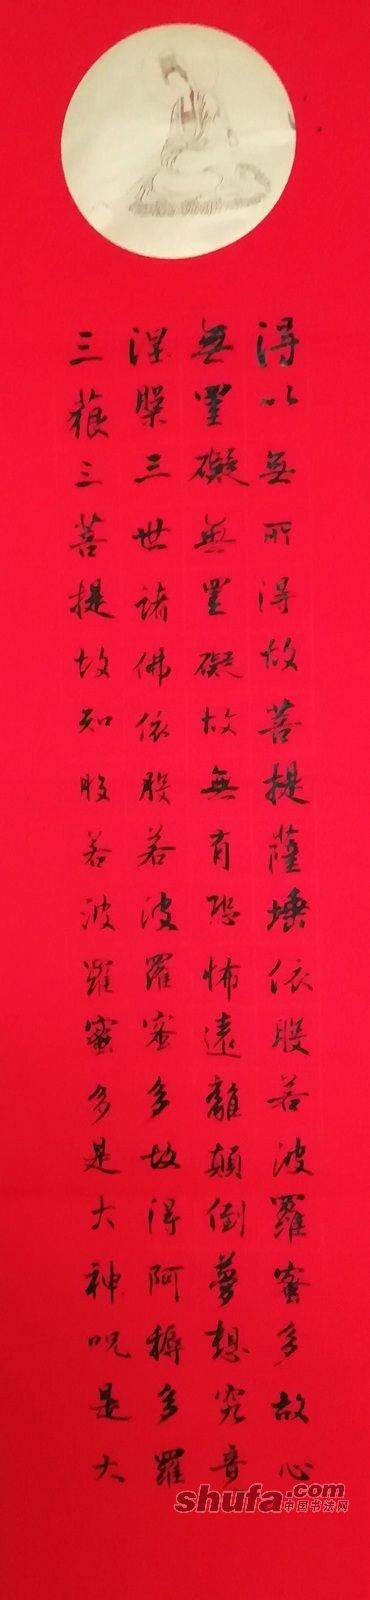 得以無所得故菩提薩埵依般若波羅蜜多故心
無罣礙無罣礙故無有恐怖遠離顛倒夢想究竟
涅槃三世諸佛依般若波羅蜜多故得阿耨多羅
三藐三菩提故知般若波羅蜜多是大神呪是大
shufa.com
中国书法网